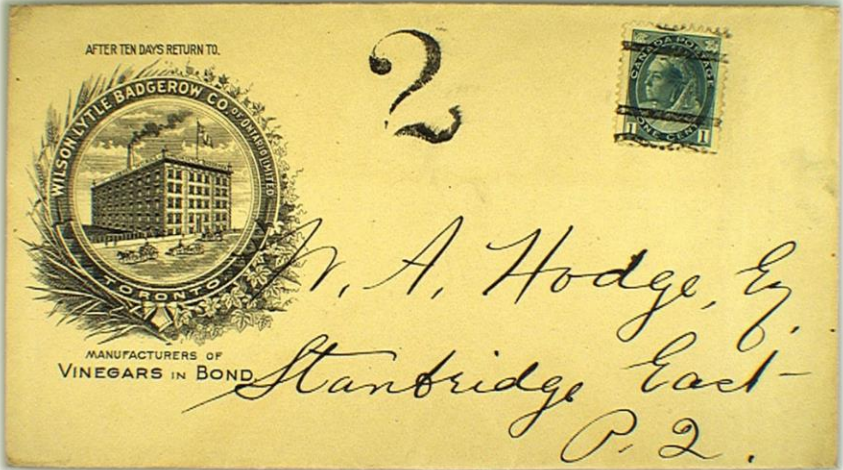 AFTER TEN DAYS RETURN TO.
WILSON, LYTLE, BADGEROW CO. OF ONTARIO LIMITED
TORONTO
MANUFACTURERS OF
VINEGARS IN BOND
2
CANADA POSTAGE
1 ONE CENT 1
W. A. Hodge, Eq.
Stanbridge East
P. Q.